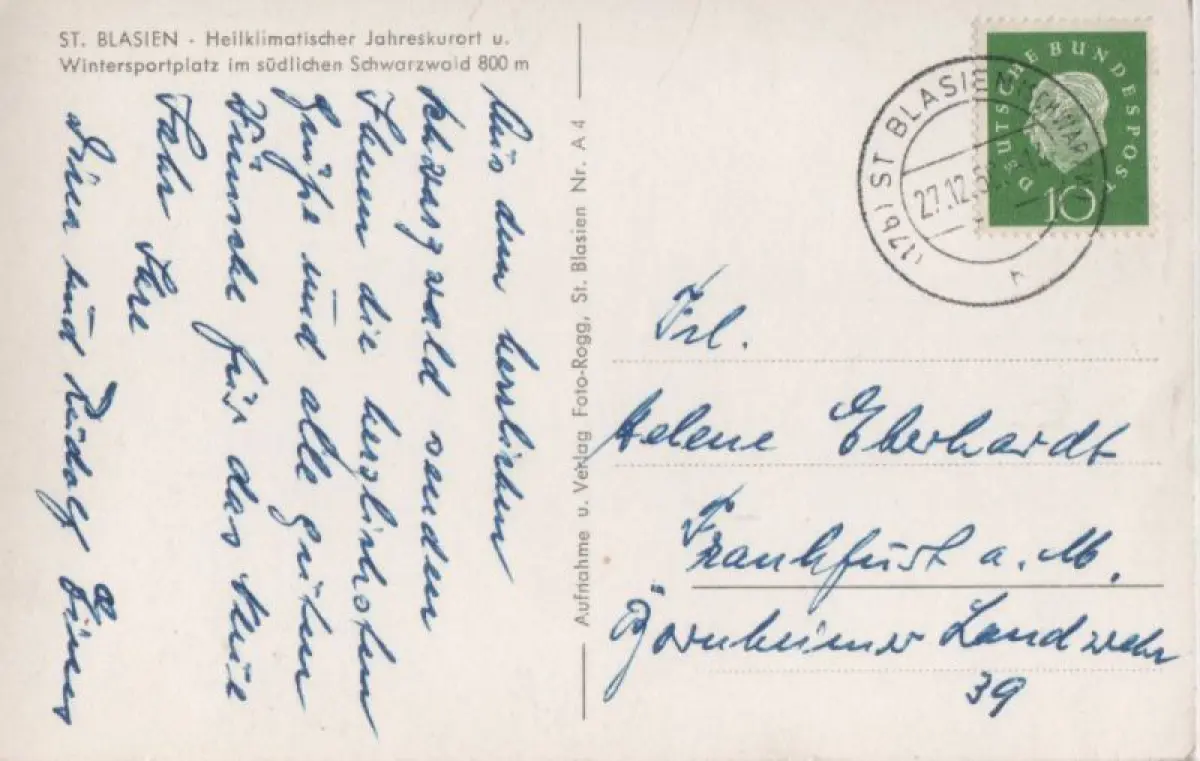 ST. BLASIEN · Heilklimatischer Jahreskurort u.
Wintersportplatz im südlichen Schwarzwald 800 m
Aus dem herrlichen
Schwarzwald senden
Ihnen die herzlichsten
Grüße und alle guten
Wünsche für das Neue
Jahr Ihre
und Rudolf
Aufnahme u. Verlag Foto-Rogg, St. Blasien Nr. A 4
DEUTSCHE BUNDESPOST
10
(17b) ST BLASIEN
27.12.
Frl.
Helene Eberhardt
Frankfurt a. M.
Bornheimer Landwehr
39